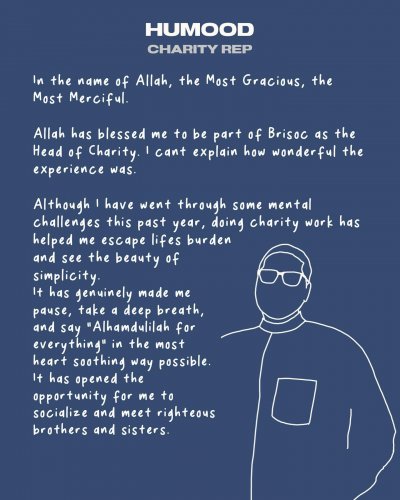 HUMOOD
CHARITY REP
In the name of Allah, the Most Gracious, the
Most Merciful.
Allah has blessed me to be part of Brisoc as the
Head of Charity. I cant explain how wonderful the
experience was.
Although I have went through some mental
challenges this past year, doing charity work has
helped me escape lifes burden
and see the beauty of
simplicity.
It has genuinely made me
pause, take a deep breath,
and say "Alhamdulilah for
everything" in the most
heart soothing way possible.
It has opened the
opportunity for me to
socialize and meet righteous
brothers and sisters.